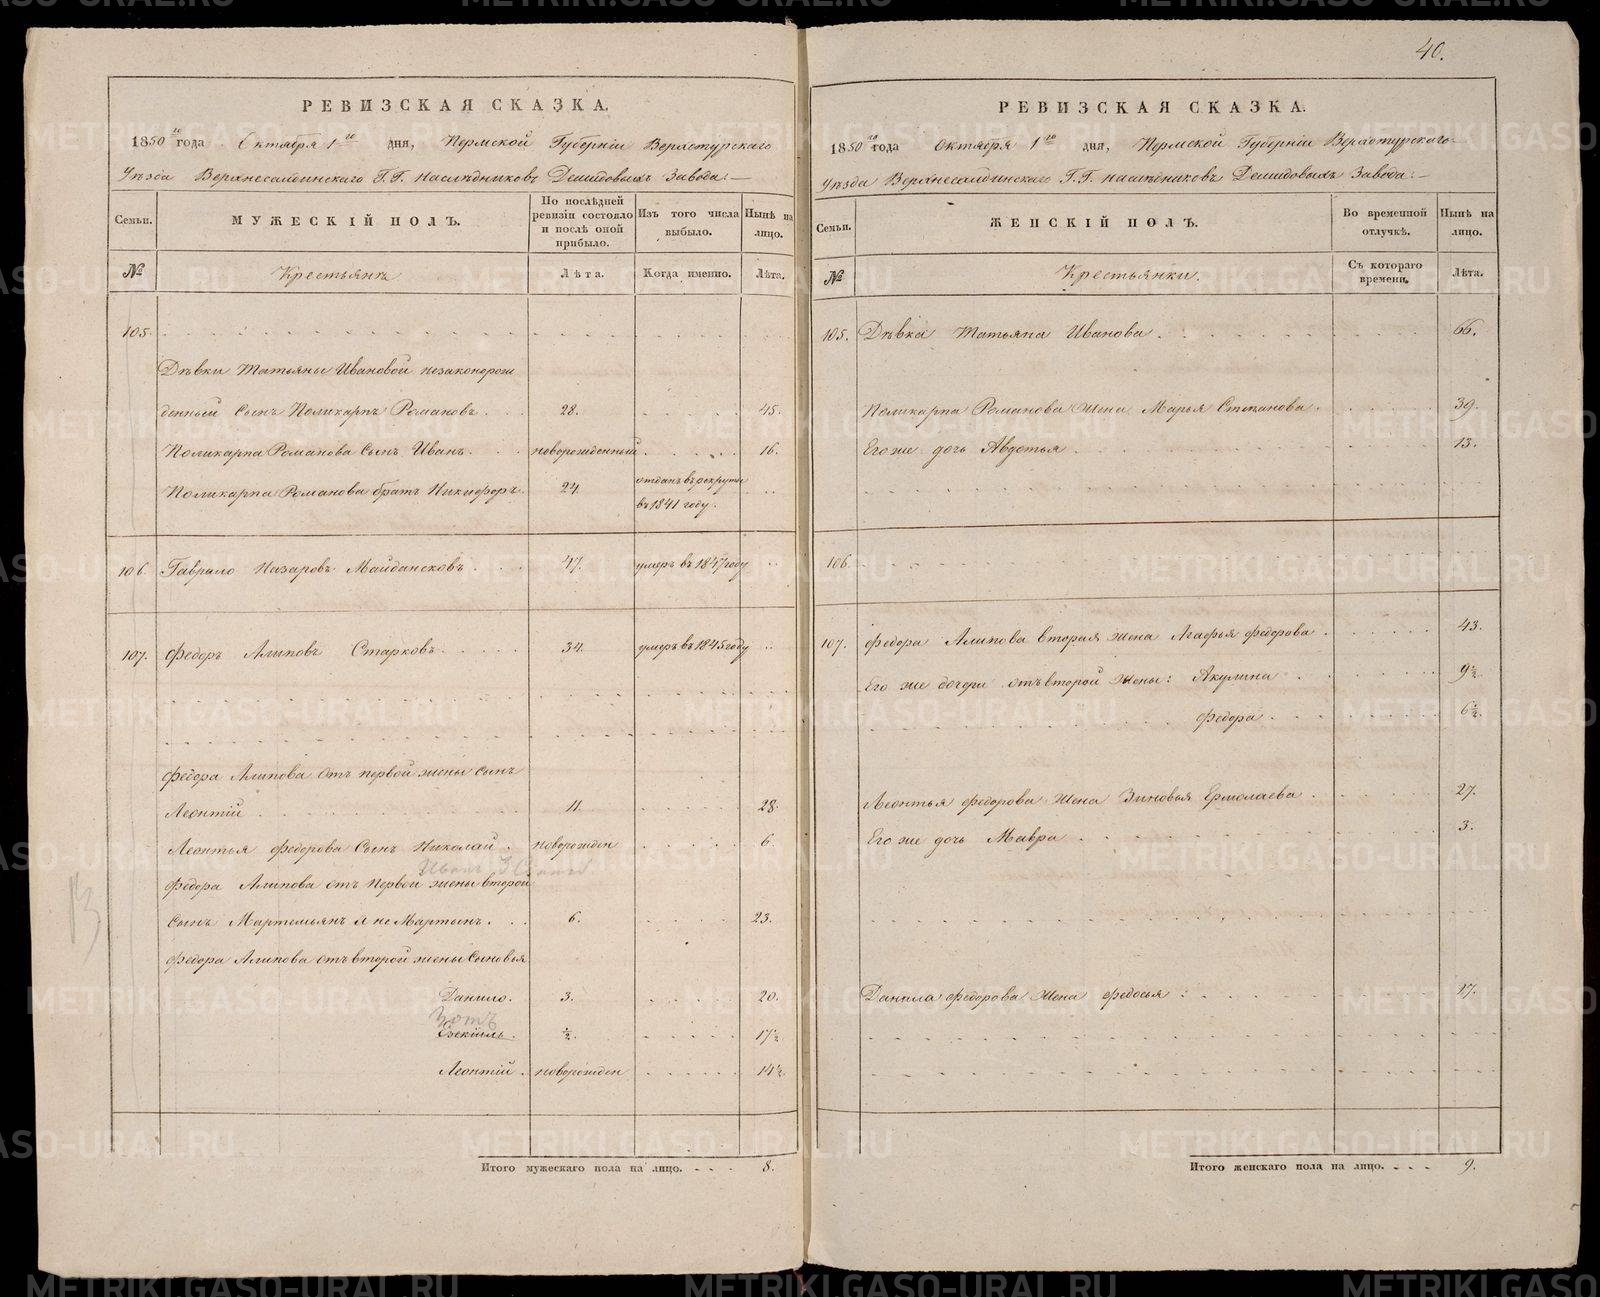 40.
РЕВИЗСКАЯ СКАЗКА.
1850го года Октября 1го дня, Пермской Губерніи Верхотурскаго
Уѣзда Верхнесалдинскаго Г.Г. Наслѣдниковъ Демидовыхъ Завода:—
Семьи.
МУЖЕСКІЙ ПОЛЪ.
По послѣдней ревизіи состояло и послѣ оной прибыло.
Изъ того числа выбыло.
Нынѣ на лицо.
№
Крестьянъ
Лѣта.
Когда именно.
Лѣта.
105.
Дѣвки Татьяны Ивановой незаконорож
денный сынъ Поликарпъ Романовъ. 28. 45.
Поликарпа Романова сынъ Иванъ. новорожденный. 16.
Поликарпа Романова братъ Никифоръ. 24. отданъ въ рекруты
въ 1841 году.
106. Гаврило Назаровъ Майдансковъ. 47. умеръ въ 1847 году
107. Федоръ Алиповъ Старковъ. 34. умеръ въ 1845 году
Федора Алипова отъ первой жены сынъ
Леонтій 11. 28.
Леонтья Федорова сынъ Николай. новорожден 6.
Федора Алипова отъ первой жены второй
сынъ Мартемьянъ а не Мартынъ. 6. 23.
Федора Алипова отъ второй жены сыновья
Данило. 3. 20.
Зотъ
Езекіиль. ½. 17½
Леонтій. новорожден 14½
Итого мужескаго пола на лицо. 8.
РЕВИЗСКАЯ СКАЗКА.
1850го года Октября 1го дня, Пермской Губерніи Верхотурскаго
Уѣзда Верхнесалдинскаго Г.Г. Наслѣдниковъ Демидовыхъ Завода:—
Семьи.
ЖЕНСКІЙ ПОЛЪ.
Во временной отлучкѣ.
Нынѣ на лицо.
№
Крестьянки.
Съ котораго времени.
Лѣта.
105. Дѣвка Татьяна Иванова. 66.
Поликарпа Романова жена Марья Степанова. 39.
Его же дочь Авдотья. 13.
106.
107. Федора Алипова вторая жена Агафья Федорова. 43.
Его же дочери отъ второй жены: Акулина 9½
Федора. 6½
Леонтья Федорова жена Зиновья Ермолаева. 27.
Его же дочь Мавра 3.
Данила Федорова жена Федосья: 17.
Итого женскаго пола на лицо. 9.
METRIKI.GASO-URAL.RU